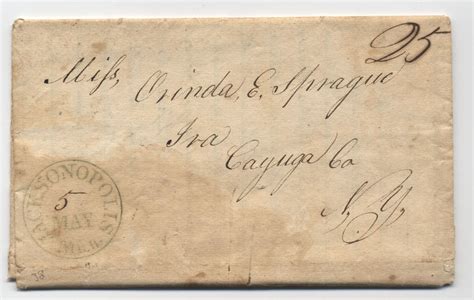 25
Miss, Orinda, E. Sprague
Ira
Cayuga Co
N, Y,
JACKSONOPOLIS
5
MAY
MICH.
38